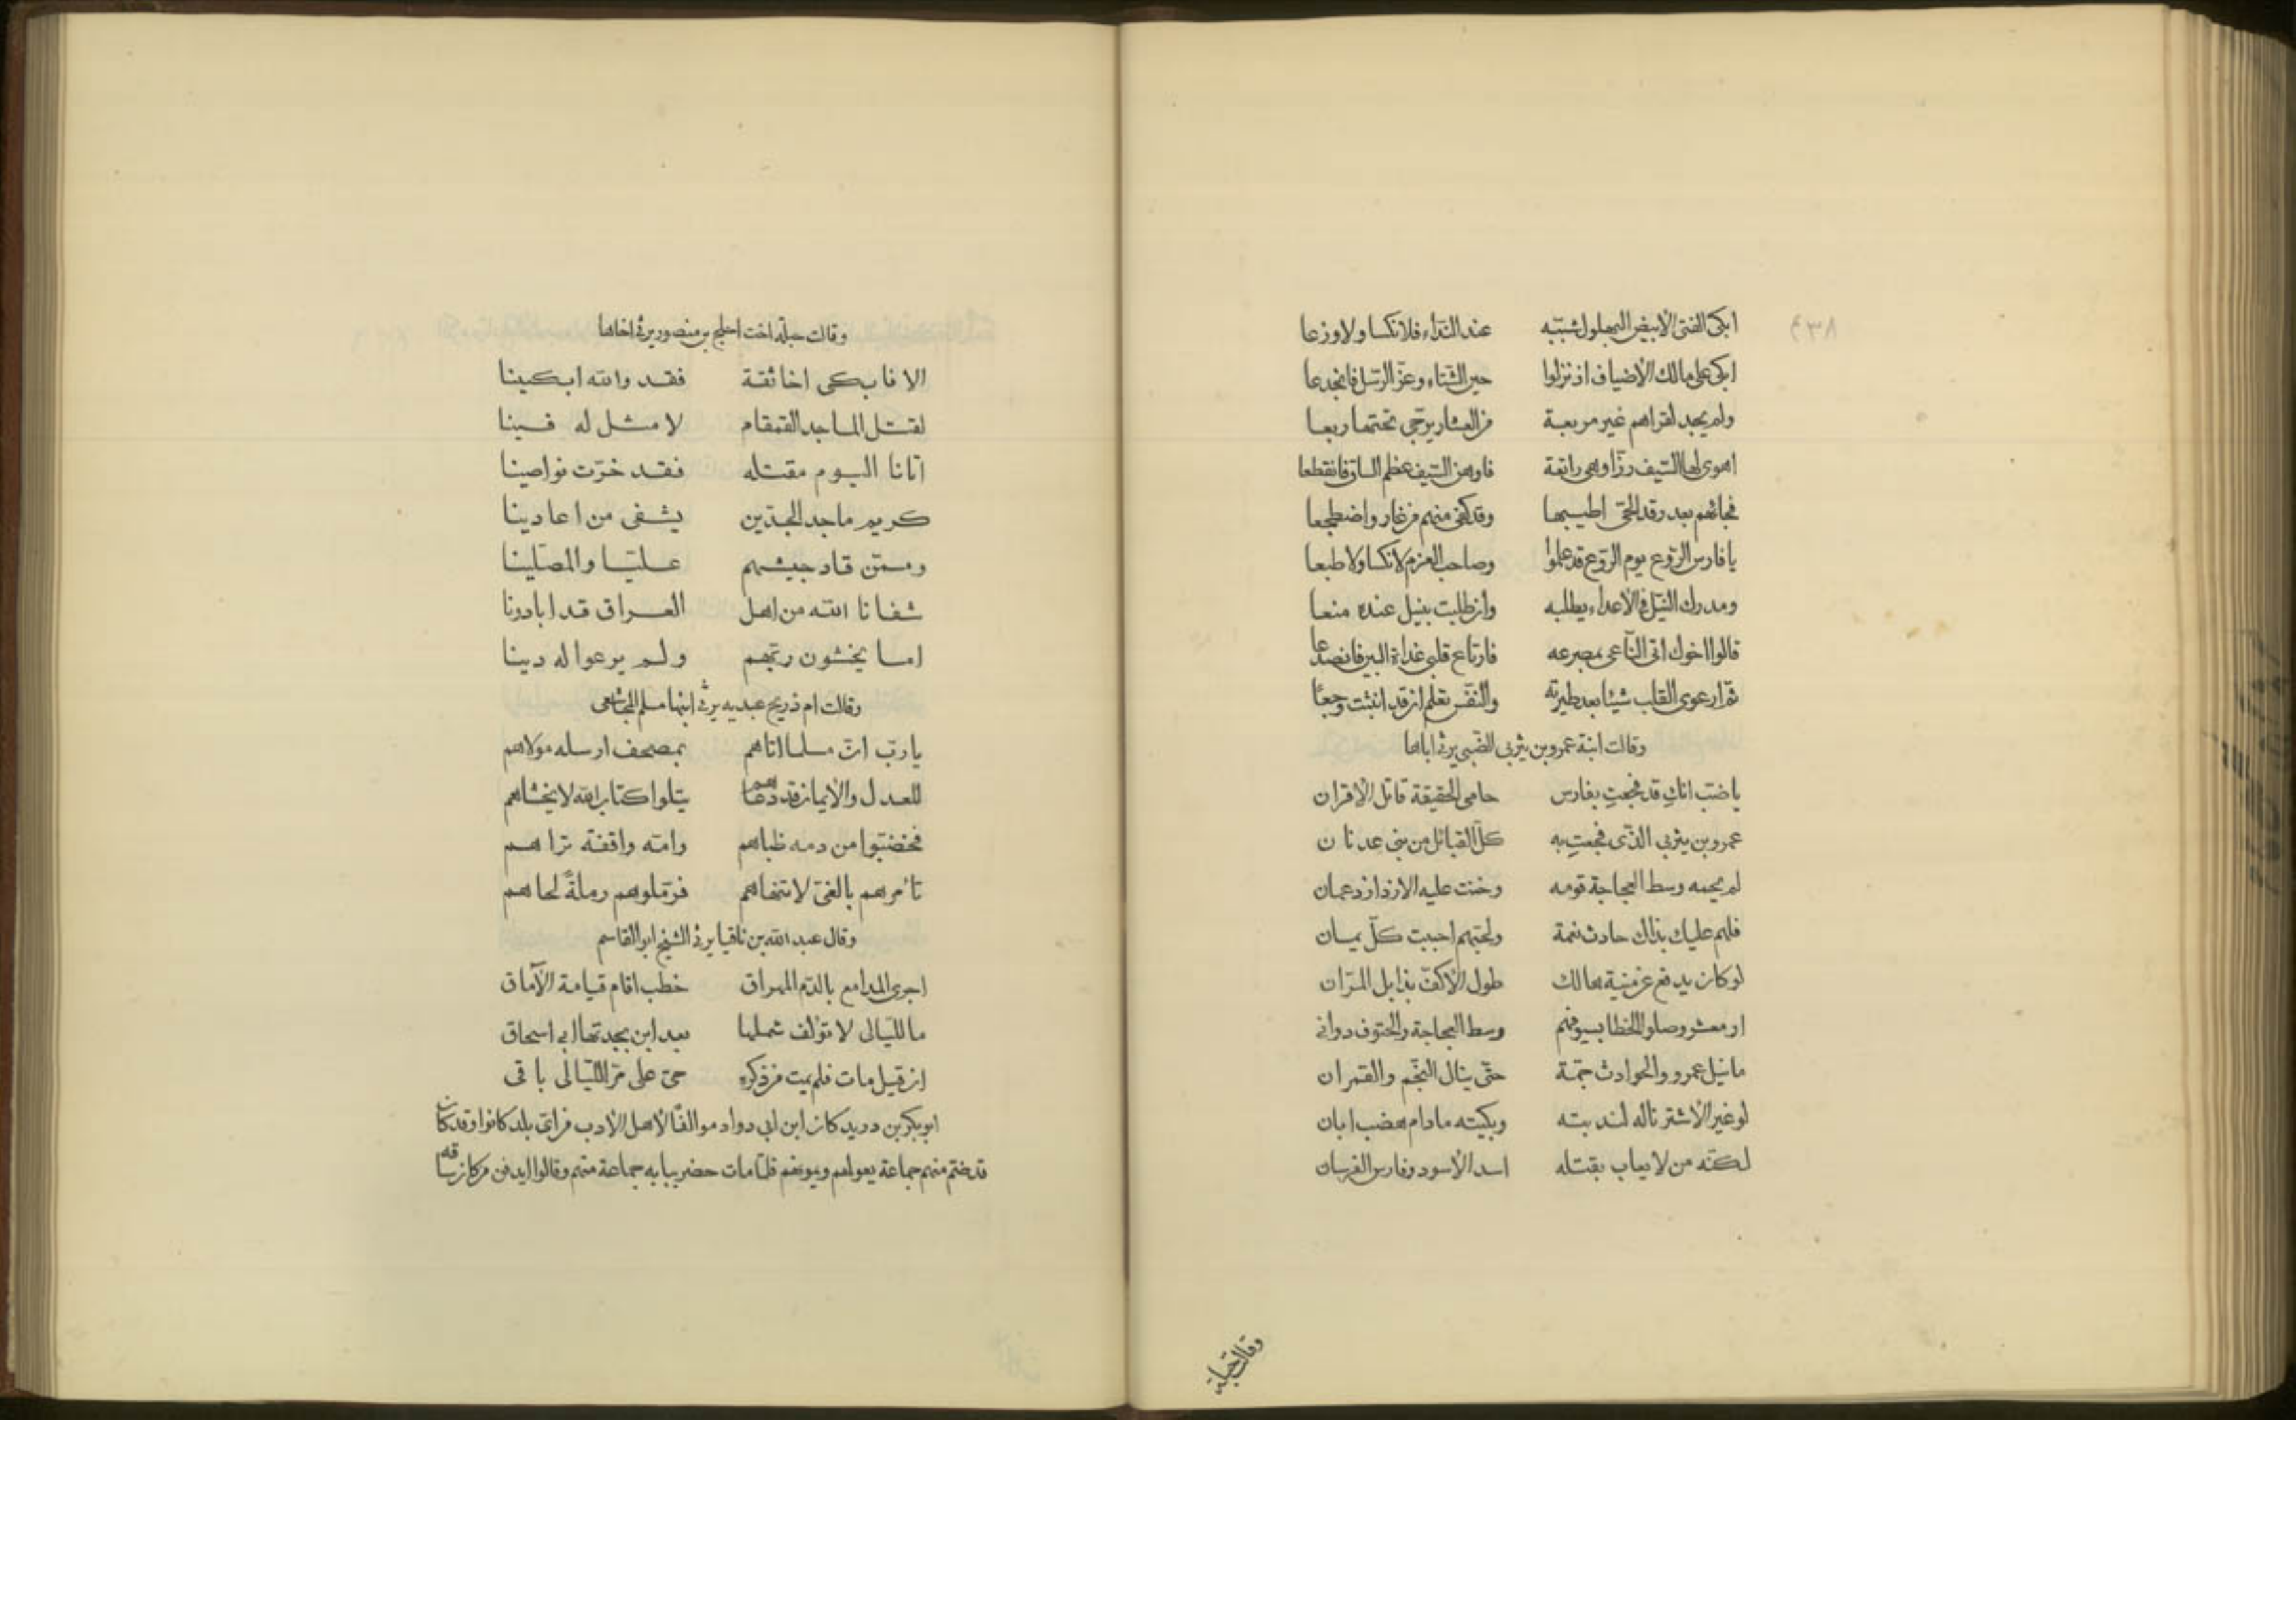 ٤٣٨
ابكى الفتى الأبيض البهلول شبّبه عند النداء فلا نكسا ولا وزعا
ابكى على مالك الأضياف اذ نزلوا حين الشتاء وعزّ الرسل فانجدعا
ولم يجد لقراهم غير مربعة من العشار يرجّى تحتها ربعا
اهوى لها السّيف رزّا وهى راتعة فاوهن السّيف عظم الساق فانقطعا
فجائهم بعد رقد الحىّ اطيبها وقد كفى منهم من غار واضطجعا
يا فارس الرّوع يوم الرّوع قد علموا وصاحب العزم لا نكسا ولا طبعا
ومدرك النّيل فى الأعداء يطلبه وان طلبت بنيل عنده منعا
قالوا اخوك اتى النّاعى بمصرعه فارتاع قلبى غداة البين فانصدعا
ثمّ ارعوى القلب شيئا بعد طيرته والنفّس تعلم ان قد اثبتت وجعًا
وقالت ابنة عمرو بن يثربى الضّبى يرثى اباها
يا ضبّ انك قد فجعتِ بفارس حامى الحقيقة قاتل الأقران
عمرو بن يثربى الذّى فجعتِ به كلّ القبائل من بنى عدنان
لم يحمه وسط العجاجة قومه وحنت عليه الازد ازد عمان
فلهم عليك بذاك حادث نعمة ولحبّهم احببت كلّ يمان
لو كان يدفع عن منية هالك طول الأكفّ بذابل المرّان
او معشر وصلوا الخطا بسيوفهم وسط العجاجة والحتوف دوانى
ما نيل عمرو والحوادث جمّة حتّى ينال النجّم والقمران
لو غير الأشتر ناله لندبته وبكيته مادام هضب ابان
لكنّه من لا يعاب بقتله اسد الأسود وفارس الفرسان
وقالت حبلة
وقالت حبلة اخت احلج بن منصور يرثى اخاها
الا فابكى اخا ثقة فقد والله ابكينا
لقتل الماجد القمقام لا مثل له فينا
اتانا اليوم مقتله فقد خرّت نواصينا
كريم ماجد الجدّين يشفى من اعادينا
وممّن قاد جيشهم عليّا والمصلّينا
شفانا الله من اهل العراق قد ابادونا
اما يخشون ربّهم ولم يرعوا له دينا
وقالت ام ذريح عبديه يرثى ابنها مسلم المجاشعى
يا ربّ انّ مسلما اتاهم بمصحف ارسله مولاهم
للعدل والأيمان قد دعاهم يتلوا كتاب الله لا يخشاهم
فخضّبوا من دمه ظباهم وامّه واقفة تراهم
تأمرهم بالغىّ لا تنهاهم فرمّلوهم رملةً لحاهم
وقال عبد الله بن ناقيا يرثى الشيخ ابو القاسم
اجرى المدامع بالدّم المهراق خطب اقام قيامة الآماق
ما للّيالى لا تؤلف شملها بعد ابن بجدتها ابى اسحاق
ان قيل مات فلم يمت من ذكره حىّ على مرّ اللّيالى باقى
ابو بكر بن دريد كان ابن ابى دواد موالفًا لأهل الأدب من اىّ بلد كانوا وقد كان
قد ضمّ منهم جماعة يعولهم ويمونهم فلمّا مات حضر ببابه جماعة منهم وقالوا ايدفن من كان ساقه